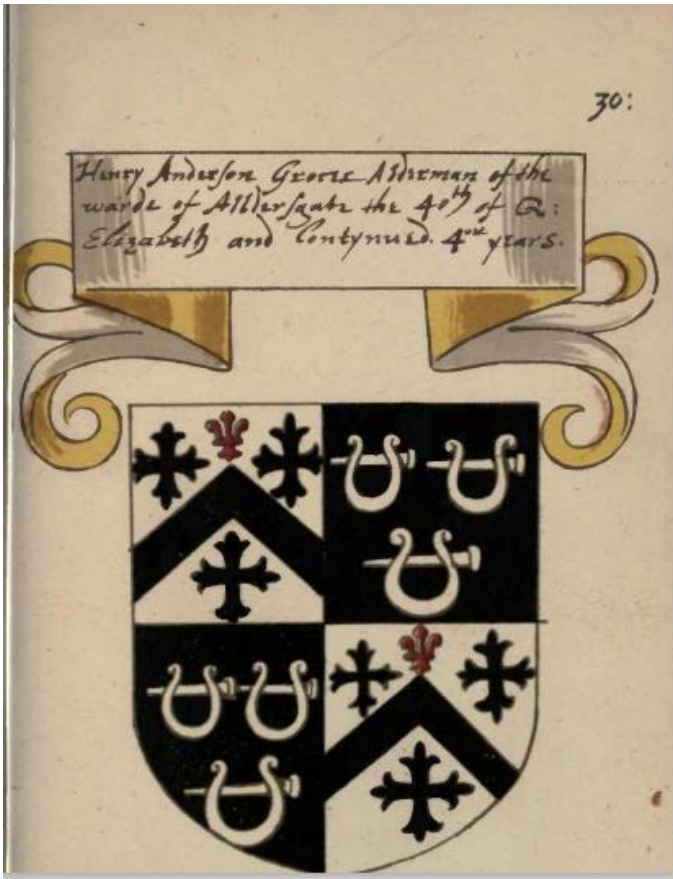 30:
Henry Anderson Grocer Alderman of the
warde of Alldersgate the 40th of Q:
Elizabeth and Contynued. 4or years.